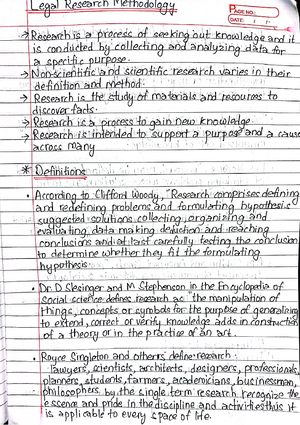 Legal Research Methodology
PAGE NO.:
DATE: / /
→ Research is a process of seeking out knowledge and it
is conducted by collecting and analyzing data for
a specific purpose.
→ Non-scientific and scientific research varies in their
definition and method.
→ Research is the study of materials and resources to
discover facts.
→ Research is a process to gain new knowledge.
→ Research is intended to support a purpose and a cause
across many
* Definitions
• According to Clifford Woody, "Research comprises defining
and redefining problems and formulating hypothesis
suggested solutions collecting, organizing and
evaluating data making deduction and reaching
conclusions and at last carefully testing the conclusion
to determine whether they fit the formulating
hypothesis
• Dr. D. Slesinger and M Stephenson in the Encyclopedia of
Social science defines research as "the manipulation of
things, concepts or symbols for the purpose of generalizing
to extend, correct or verify knowledge adds in construction
of a theory or in the practice of an art.
• Royce Singleton and others define research:
"Lawyers, scientists, architects, designers, professionals,
planners, students, farmers, academicians, businessman,
philosophers by the single term research recognize the
essence and pride in the discipline and activities thus it
is applicable to every space of life.